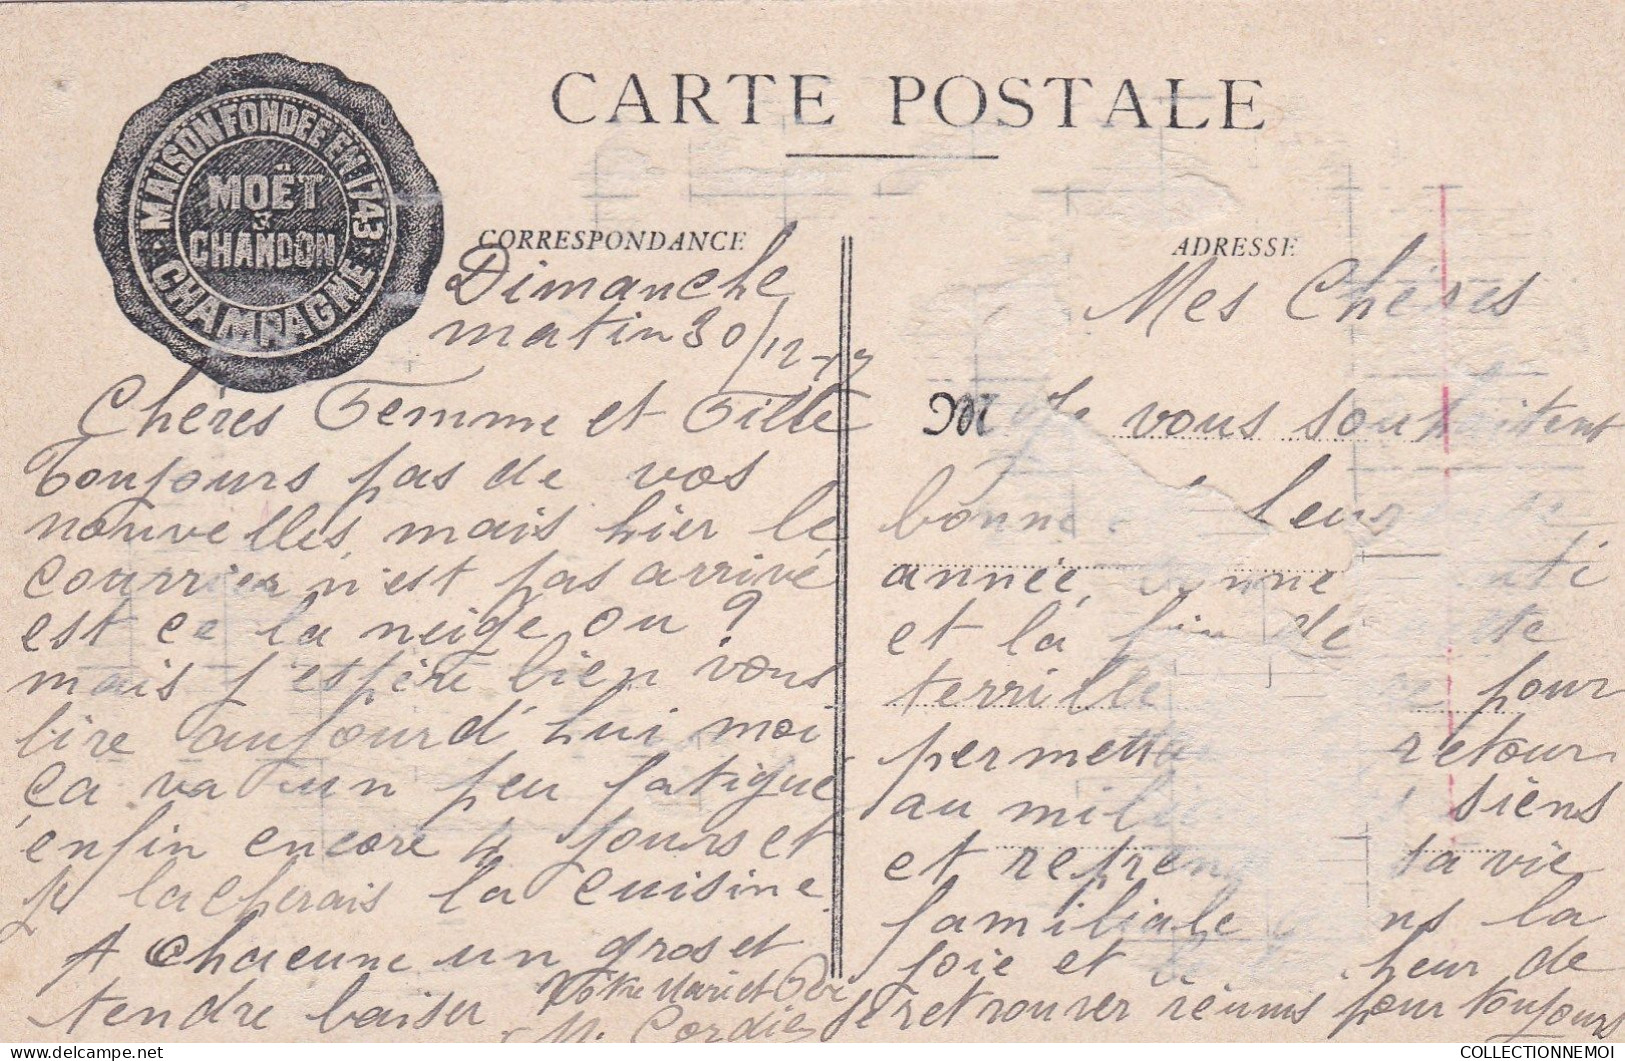 CARTE POSTALE
MAISON FONDÉE EN 1743
MOËT
&
CHANDON
CHAMPAGNE
CORRESPONDANCE
Dimanche
matin 30/12-17
Chères Femme et Fille
Toujours pas de vos
nouvelles, mais hier le
courrier n'est pas arrivé
est ce la neige ou ?
mais j'espère bien vous
lire aujourd'hui moi
ça va un peu fatigué
enfin encore 4 jours et
je lacherais la cuisine
A chacune un gros et
tendre baiser Votre Mari et
M. Cordier
ADRESSE
Mes Chères
M vous souhaitent
bonne
année, bonne
et la fin de
terrille pour
permetta retour
au milieu siens
et repren la vie
familiale la
joie et heur de
se retrouver réunis pour toujours
COLLECTIONNEMOI